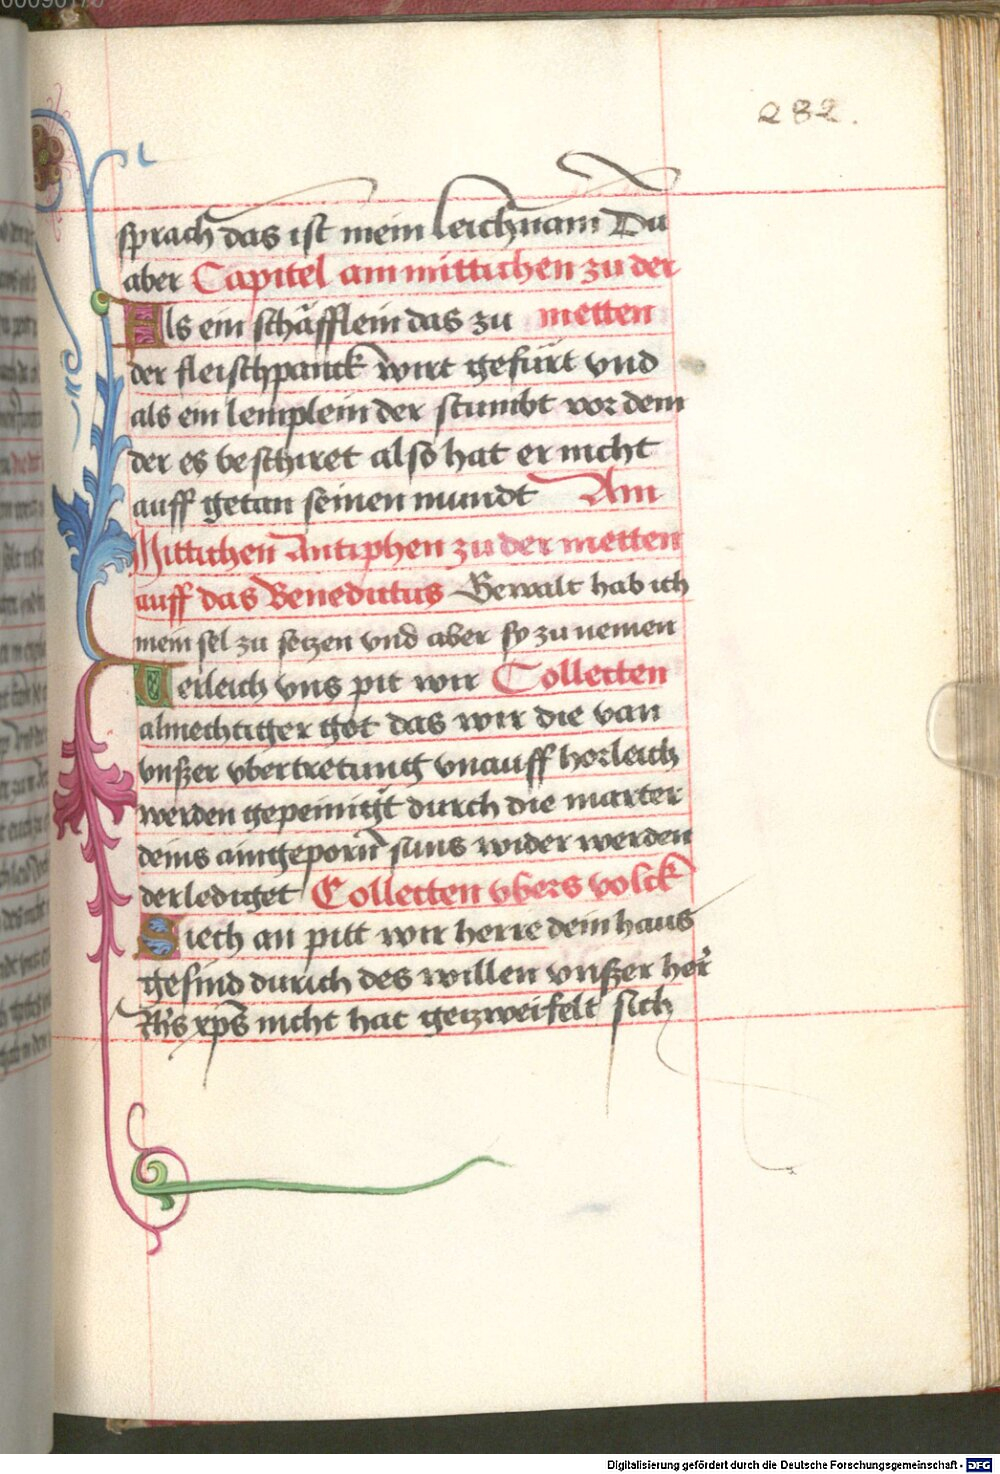 00090170
282.
sprach das ist mein leichnam Du
aber Capitel am mittichen zu der
Als ein schäfflein das zu metten
der fleischpanck wirt gefürt vnd
als ein lemplein der stumbt vor dem
der es beschiret also hat er nicht
auff getan seinen mundt Am
Mittichen Antiphen zu der metten
auff das Benedictus Gewalt hab ich
mein sel zu seczen vnd aber sy zu nemen
Verleich vns pit wir Collecten
almechtiger got das wir die van
vnßer vbertretung vnauffhorleich
werden gepeinigt durch die marter
deins aingeporn̄ suns wider werden
derlediget Collecten vbers volck
Siech an pitt wir herre dein haus
gesind durich des willen vnßer her̄
Ih̄s xp̄s nicht hat geczweifelt sich
Digitalisierung gefördert durch die Deutsche Forschungsgemeinschaft - DFG